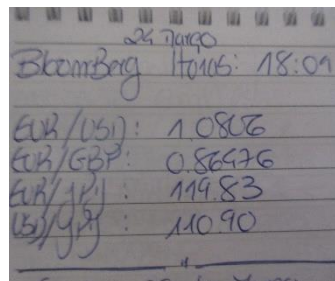 24 Março
Bloomberg Horas: 18:01
EUR/USD: 1.0806
EUR/GBP: 0.86476
EUR/JPY: 119.83
USD/JPY: 110.90